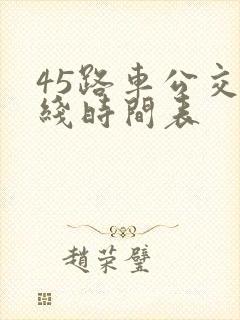 45路車公交
綫時間表
趙榮璧